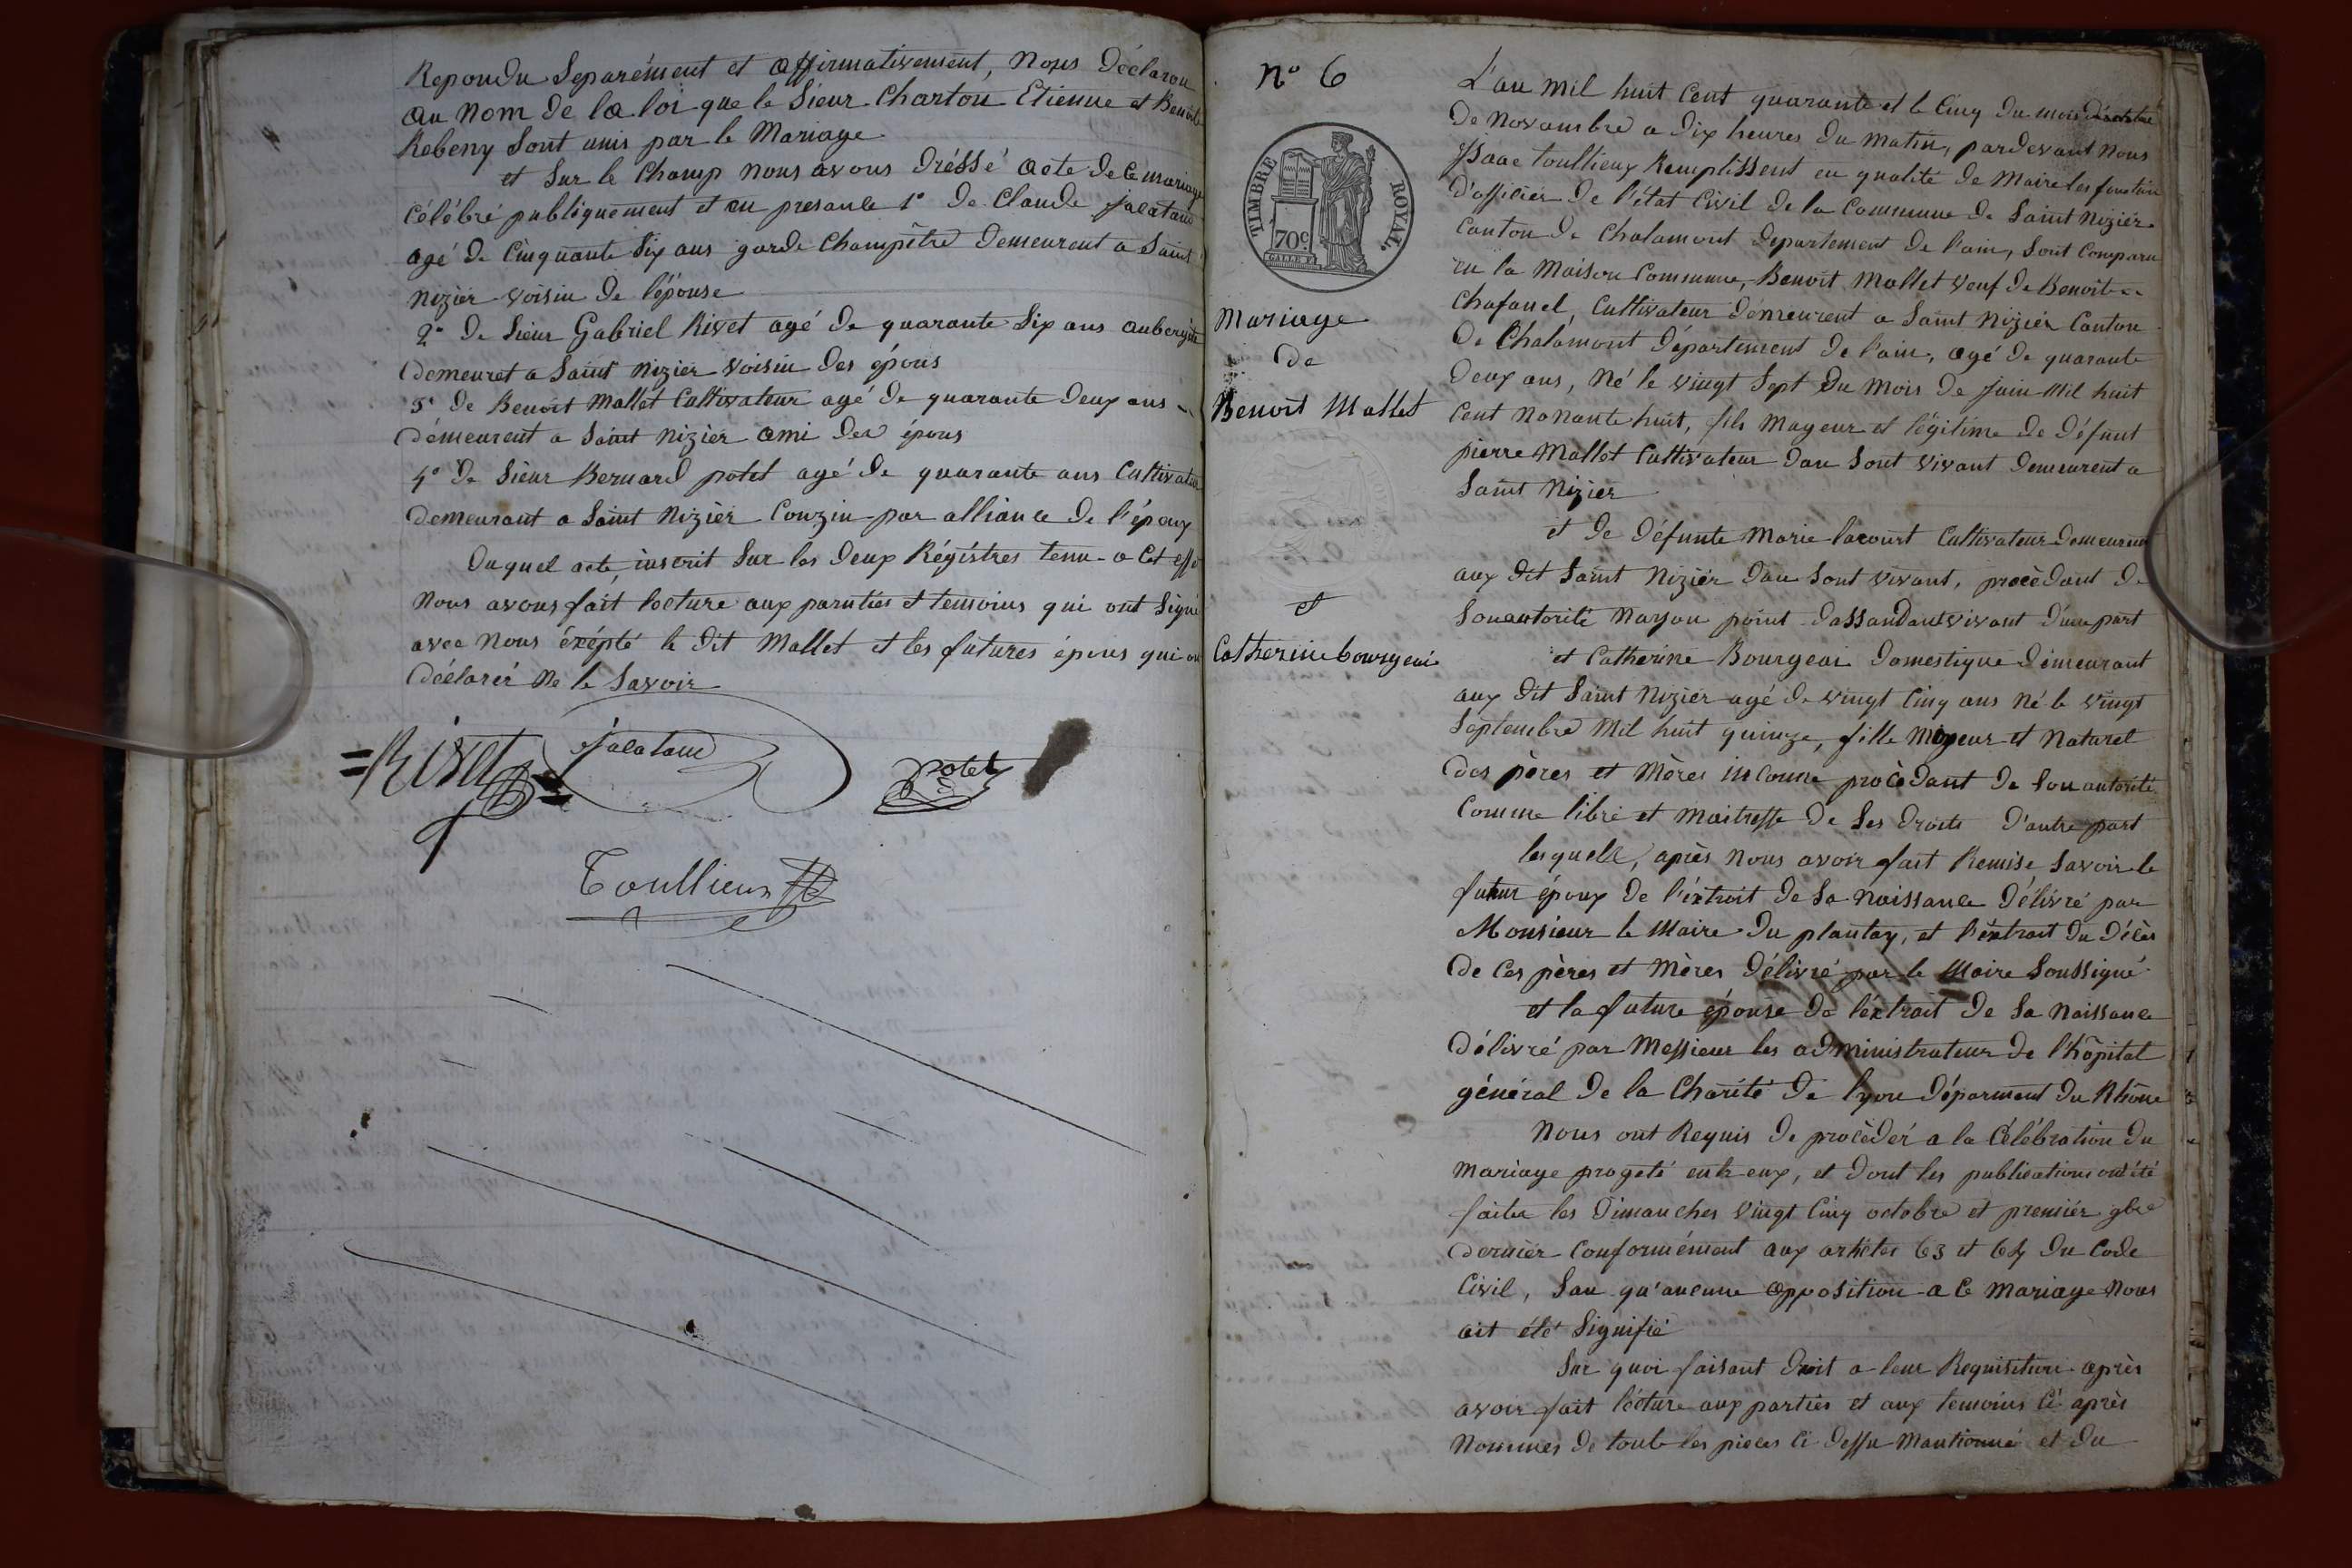 Repondu Separément et affirmativement, Nous Déclaron
au Nom de la loi que le Sieur Charton Etienne et Benoite
Rebeny Sont unis par le Mariage
et Sur le Champ nous avons Dréssé acte de Ce mariage
Célébré publiquement et en presance 1° De Claude jacataud
agé De Cinquante Six ans garde Champêtre Demeurent a Saint
Nizier voisin De l'épouse
2° De Sieur Gabriel Rivet agé de quarante Six ans aubergiste
Demeuret a Saint Nizier voisin Des épous
3° De Benoit Mallet Cultivateur agé De quarante Deux ans
Démeurent a Saint Nizier ami Des épous
4° De Sieur Bernard potet agé De quarante ans Cultivateur
Demeurant a Saint Nizièr Couzin par alliance De l'époux
Duquel acte, inscrit Sur les Deux Régistres tenu a Cet effet
Nous avons fait lecture aux paruties et temoins qui ont Signé
avec Nous éxépté le Dit Mallet et les futures épous qui on
Déclarér Ne le Savoir
Rivet
jacataud
potet
Toullieux
N° 6
TIMBRE ROYAL.
70c
Mariage
De
Benoit Mallet
et
Catherine bourgeoi
L'an Mil huit Cent quarante et le Cinq Du mois
De Novembre a Dix heures Du Matin, pardevant Nous
Isaac toullieux Remplissent en qualité De Maire les fonction
D'officier De l'état Civil De la Commune De Saint Nizièr
Canton De Chalamont Departement De l'ain, Sont Comparu
en la Maison Commune, Benoit Mallet Veuf De Benoite
Chafanel, Cultivateur Démeurent a Saint Nizièr Canton
De Chalamont Département De l'ain, agé De quarante
Deux ans, Né le vingt Sept Du Mois De Juin Mil huit
Cent Nonante huit, fils Mageur et légitime De Défunt
pierre Mallet Cultivateur Dan Sont vivant Demeurent a
Saint Nizier
et De Défunte Marie lacourt Cultivateur Demeurent
aux Dit Saint Nizièr Dan Sont vivant, procèdant De
Son autorité Nayan point Dassandant vivant D'une part
et Catherine Bourgeoi Domestique Démeurant
aux Dit Saint Nizièr agé De vingt Cinq ans Né le vingt
Septembre Mil huit quinze, fille Mageur et Naturel
Des pères et Mères inconne procèdant De Son autorité
Comme libre et Maitresse De Ses Droits D'autre part
lesquels, après Nous avoir fait Remise Savoir le
futur époux De l'éxtrait De Sa Naissance Délivré par
Monsieur le Maire Du plantay, et l'éxtrait Du Décès
De Ces pères et Mères Délivré par le Maire Soussigné
et la future épouse De l'éxtrait De Sa Naissance
Délivré par Messieur les administrateur De l'hôpital
général De la Charité De lyon Déparment Du Rhône
Nous ont Requis De procèdér a la Célébration Du
Mariage progeté entr eux, et Dont les publications ont été
faites les Dimanches vingt Cinq octobre et premiér 9bre
Dernièr Conformément aux articles 63 et 64 Du Code
Civil, San qu'aucune opposition a Ce Mariage Nous
ait été Signifié
Sur quoi faisant Droit a leur Requisition après
avoir fait lécture aux partiés et aux temoins Ci après
Nommés De toute les pieces Ci Dessu Mantionné et Du